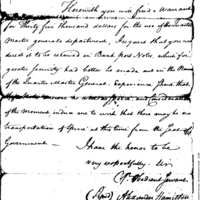 Herewith you will find a Warrant
for Thirty five thousand dollars for the use of the Quarter
Master general department. I request that you
send it to be returned in Bank post Notes, which for
greater security had better be made out in the Name
of the Quarter Master General. Experience
of the moment induce me to wish that there may be no
transportation of Specie at this time from the Seat of
Government.
I have the honor to be
very respectfully. Sir
Yr. Obedient Servant
(Signed) Alexander Hamilton